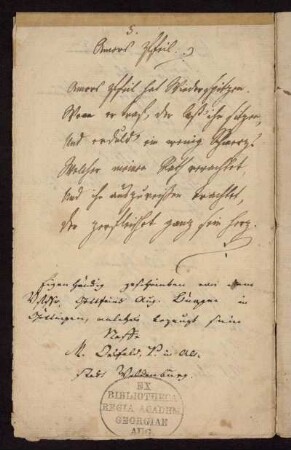 5.
Amors Pfeil.
Amors Pfeil hat Widerspitzen.
Wen er traf, der laß ihn sitzen,
Und erduld' ein wenig Schmerz!
Welcher meinen Rath verachtet,
Und ihn auszureissen trachtet,
Der zerfleischet ganz sein Herz.
Eigenhändig geschrieben von
Gottfried Aug. Bürger in
Göttingen, welches bezeugt sein
Neffe
M.
EX
BIBLIOTHECA
REGIA ACADEM.
GEORGIAE
AUG.